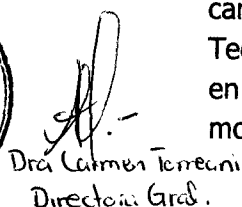 car
Tec
en
mo
Dra Carmen Torreani
Directora Gral.